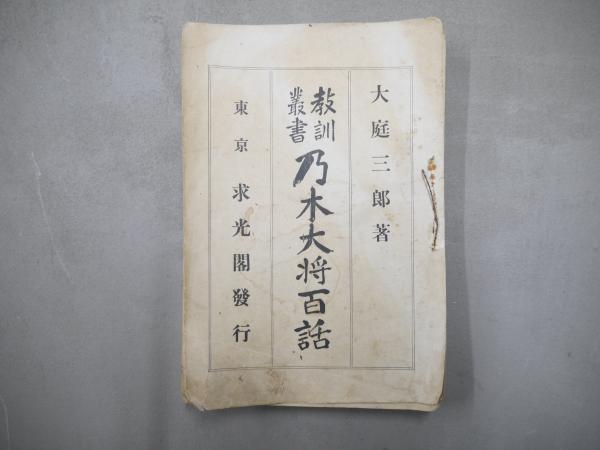 大庭三郎著
教訓
叢書
乃木大将百話
東京 求光閣發行